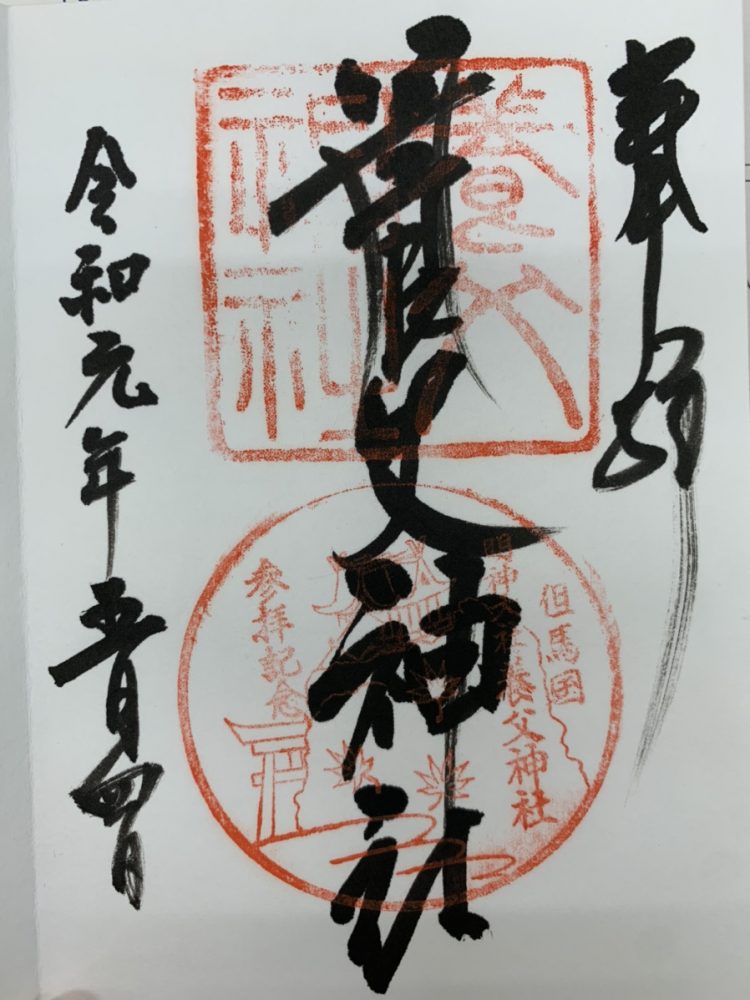 奉拝
養父神社
養父
神社
但馬国
明神大社 養父神社
参拝記念
令和元年五月四日